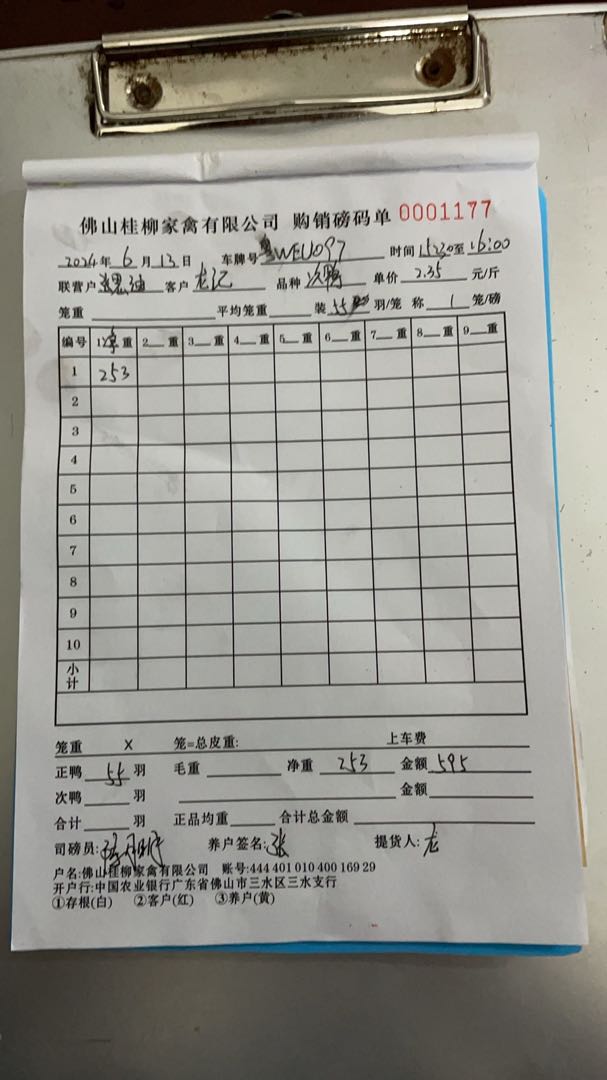 佛山桂柳家禽有限公司 购销磅码单 0001177
2024年 6 月 13 日 车牌号 粤WEU097 时间 15:30至 16:00
联营户 客户 龙记 品种 次鸭 单价 2.35 元/斤
笼重 平均笼重 装 55 羽/笼 称 1 笼/磅
编号 1净重 2 重 3 重 4 重 5 重 6 重 7 重 8 重 9 重
1 253
2
3
4
5
6
7
8
9
10
小计
笼重 X 笼=总皮重: 上车费
正鸭 55 羽 毛重 净重 253 金额 595
次鸭 羽 金额
合计 羽 正品均重 合计总金额
司磅员: 养户签名: 张 提货人: 龙
户名:佛山桂柳家禽有限公司 账号:444 401 010 400 169 29
开户行:中国农业银行广东省佛山市三水区三水支行
①存根(白) ②客户(红) ③养户(黄)